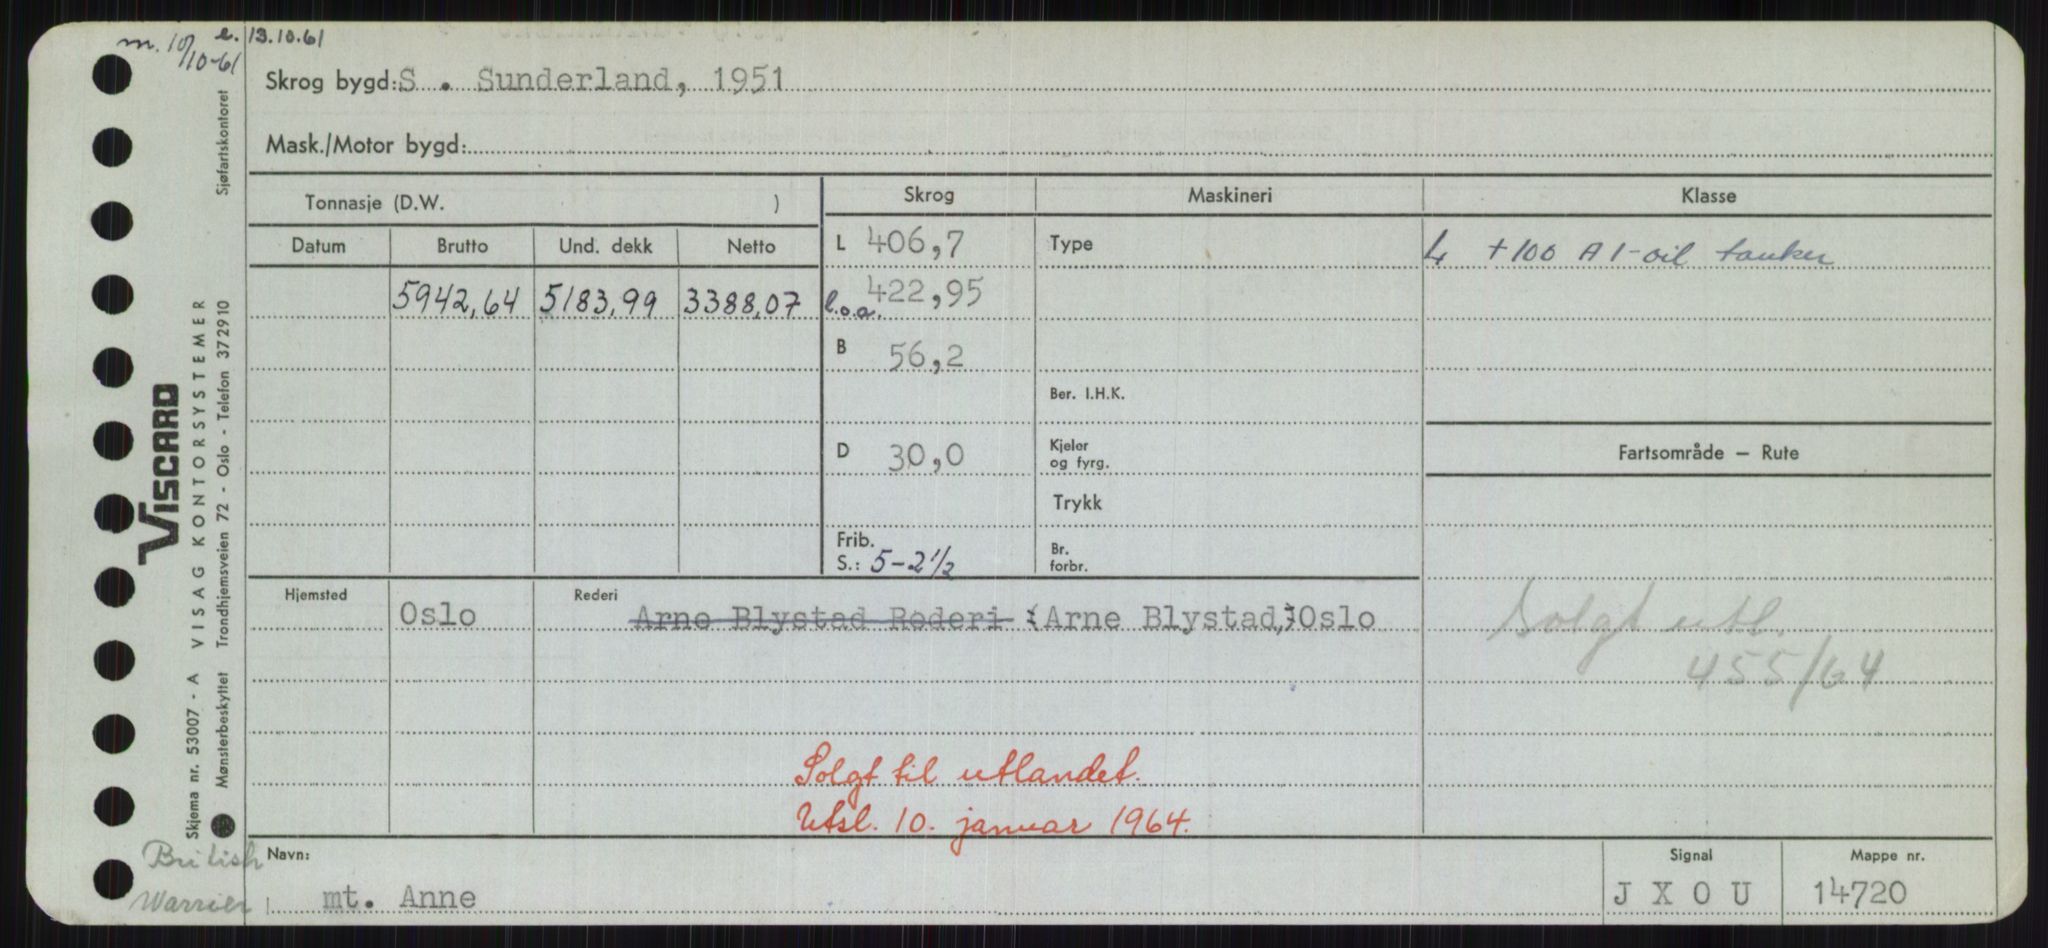 m. 10/10-61 e. 13.10.61
Skrog bygd: S . Sunderland, 1951
Mask./Motor bygd:
Tonnasje (D.W. )
Skrog
Maskineri
Klasse
Datum Brutto Und. dekk Netto
L 406,7
Type
L +100 A1-oil tanker
5942,64 5183,99 3388,07
l.o.a. 422,95
B 56,2
Ber. I.H.K.
D 30,0
Kjeler
og fyrg.
Fartsområde – Rute
Trykk
Frib.
S.: 5-2 1/2
Br.
forbr.
Hjemsted Oslo
Rederi Arne Blystad Rederi (Arne Blystad,) Oslo
Solgt utl.
455/64
Solgt til utlandet.
Utsl. 10. januar 1964.
Navn: mt. Anne
Signal J X O U
Mappe nr. 14720
British
Warrier
VISCARD
VISAG KONTORSYSTEMER
Sjøfartskontoret
Trondhjemsveien 72 - Oslo - Telefon 372910
Skjema nr. 53007 - A
Mønsterbeskyttet